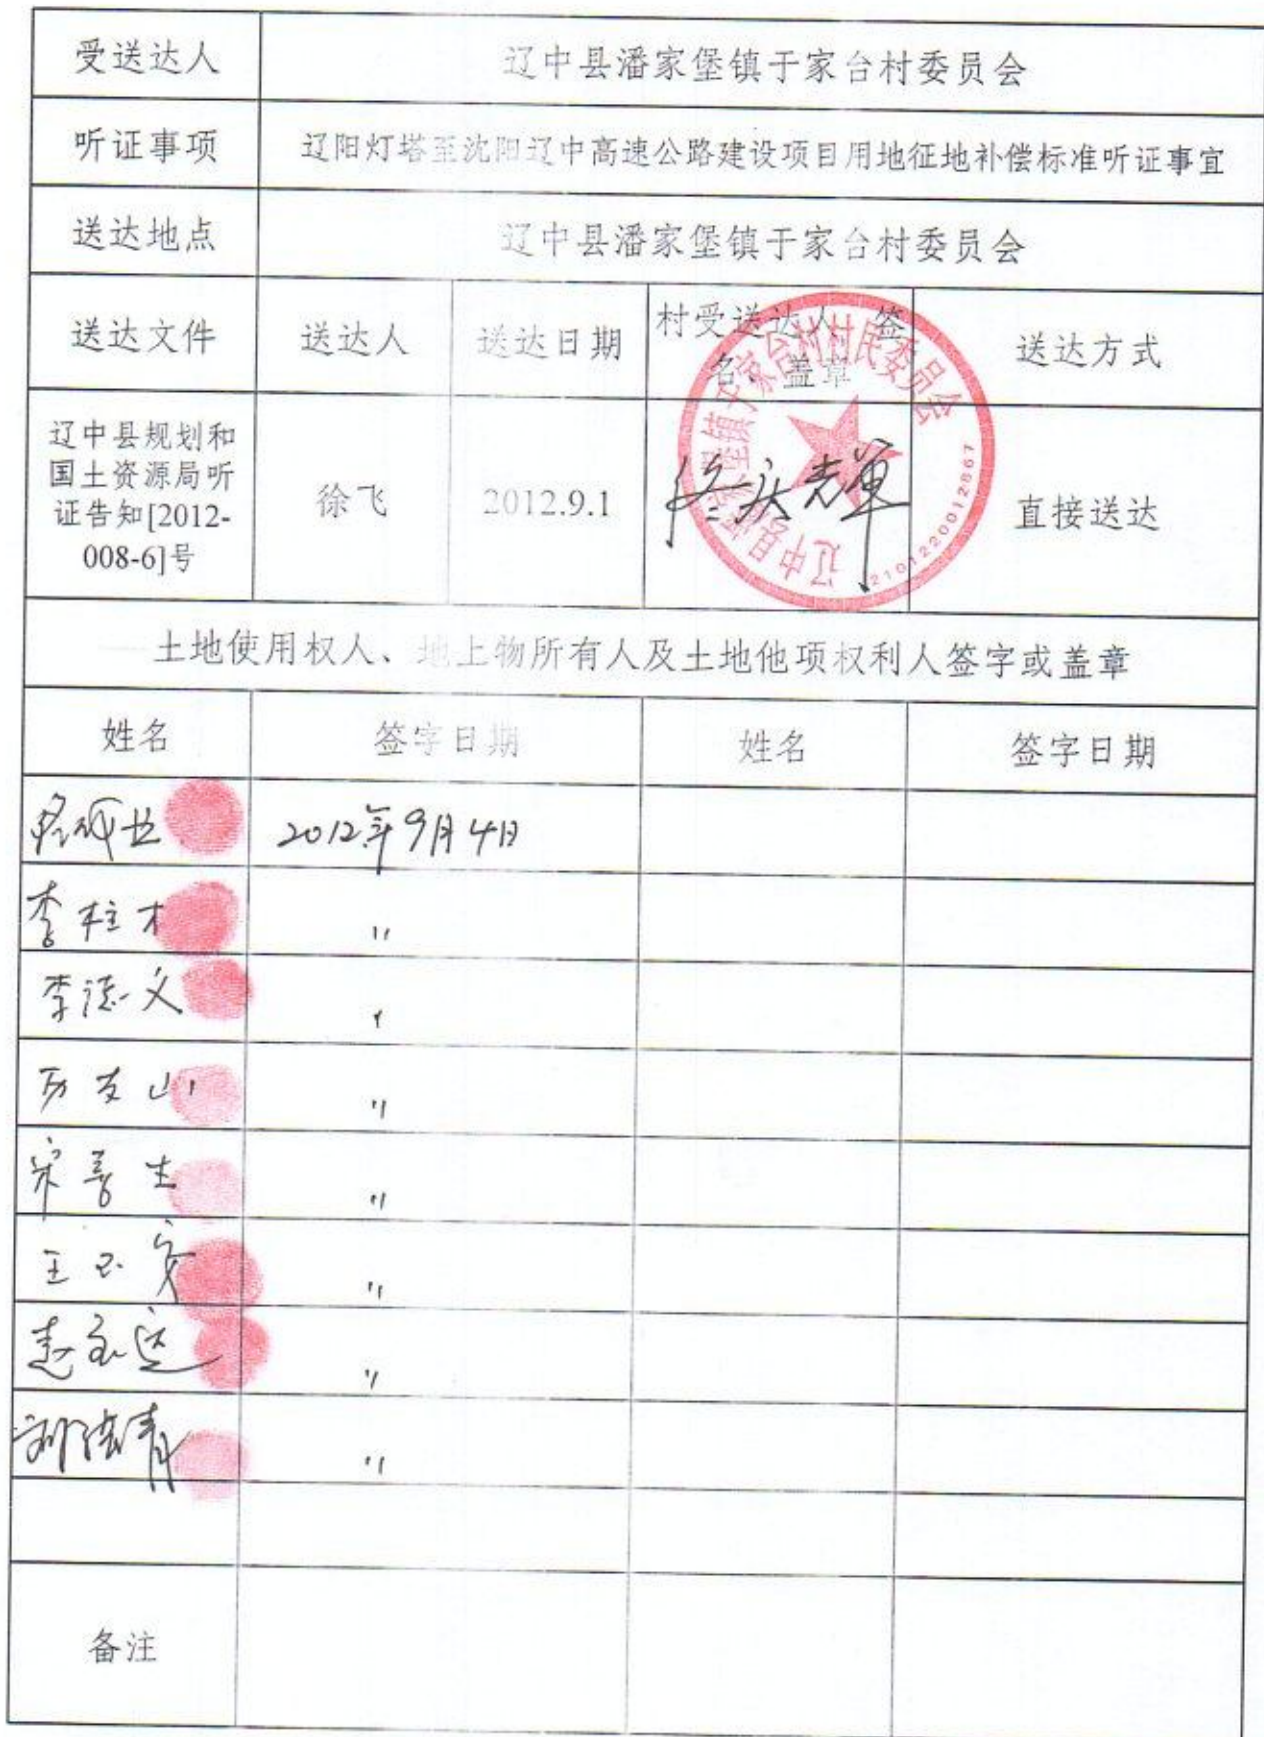 受送达人
辽中县潘家堡镇于家台村委员会
听证事项
辽阳灯塔至沈阳辽中高速公路建设项目用地征地补偿标准听证事宜
送达地点
辽中县潘家堡镇于家台村委员会
送达文件
送达人
送达日期
村受送达人、签
名、盖章
送达方式
辽中县规划和
国土资源局听
证告知[2012-
008-6]号
徐飞
2012.9.1
辽中县潘家堡镇于家台村村民委员会
2101220012867
直接送达
土地使用权人、地上物所有人及土地他项权利人签字或盖章
姓名
签字日期
姓名
签字日期
2012年9月4日
李柱才
〃
李德义
〃
历友山
〃
宋善生
〃
王
〃
〃
〃
备注